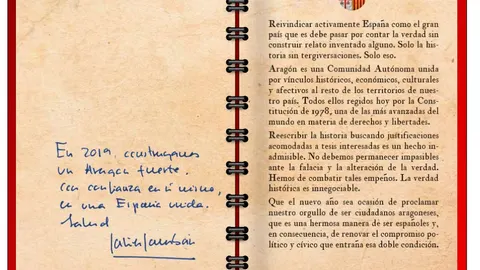 En 2019, construyamos
un Aragón fuerte.
Con confianza en sí mismo,
en una España unida.
Salud
Reivindicar activamente España como el gran
país que es debe pasar por contar la verdad sin
construir relato inventado alguno. Solo la his-
toria sin tergiversaciones. Solo eso.
Aragón es una Comunidad Autónoma unida
por vínculos históricos, económicos, culturales
y afectivos al resto de los territorios de nues-
tro país. Todos ellos regidos hoy por la Cons-
titución de 1978, una de las más avanzadas del
mundo en materia de derechos y libertades.
Reescribir la historia buscando justificaciones
acomodadas a tesis interesadas es un hecho in-
admisible. No debemos permanecer impasibles
ante la falacia y la alteración de la verdad.
Hemos de combatir tales empeños. La verdad
histórica es innegociable.
Que el nuevo año sea ocasión de proclamar
nuestro orgullo de ser ciudadanos aragoneses,
que es una hermosa manera de ser españoles y,
en consecuencia, de renovar el compromiso
político y cívico que entraña esa doble condición.